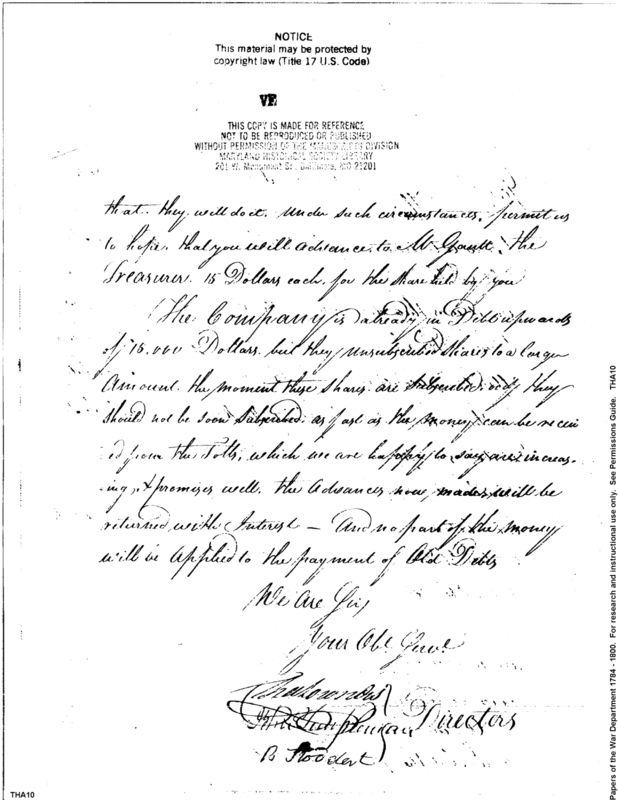 NOTICE
This material may be protected by
copyright law (Title 17 U.S. Code)
THIS COPY IS MADE FOR REFERENCE
NOT TO BE REPRODUCED OR PUBLISHED
WITHOUT PERMISSION OF THE MANUSCRIPTS DIVISION
MARYLAND HISTORICAL SOCIETY LIBRARY
201 W. Monument St., Baltimore, MD 21201
that they will do it. Under such circumstances, permit us
to hope, that you will advance to Mr Gantt the
Treasurer. 15 Dollars each, for the share held by you
The Company is already in Debt upwards
of 15.000 Dollars. but they unsubscribed shares to a larger
Amount. the moment these shares are subscribed, or if they
should not be soon subscribed, as fast as the money can be receiv
ed from the Tolls, which we are happy to say are increas-
-ing, & promises well. the Advances now made, will be
returned with Interest — And no part of the money
will be applied to the payment of Old Debts
We Are Sir
Your Obt Servt
Directors
B Stoddert
THA10
Papers of the War Department 1784 - 1800. For research and instructional use only. See Permissions Guide. THA10